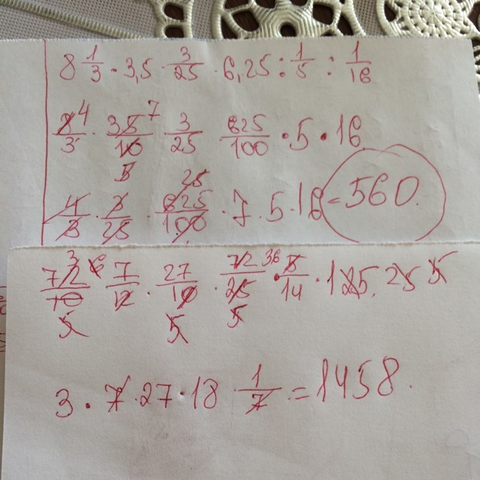 8 1/3 · 3,5 · 3/25 · 6,25 : 1/5 : 1/16
8 4/3 · 35 7/10 5 · 3/25 625/100 · 5 · 16
4/3 · 3/25 · 625 25/100 · 7 · 5 · 16 = 560.
72 3 6/10 5 · 7/12 · 27/10 5 · 72 36/25 5 · 5/14 · 125 · 25 5
3 · 7 · 27 · 18 · 1/7 = 1458.